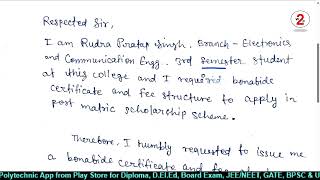 2
Respected Sir,
I am Rudra Pratap Singh, Branch - Electronics
and Communication Engg. 3rd semester student
at this college and I required bonabide
certificate and fee structure to apply in
post matric scholarship scheme.
Therefore, I humbly requested to issue me
a bonabide certificate and fee
Polytechnic App from Play Store for Diploma, D.El.Ed, Board Exam, JEE/NEET, GATE, BPSC & U